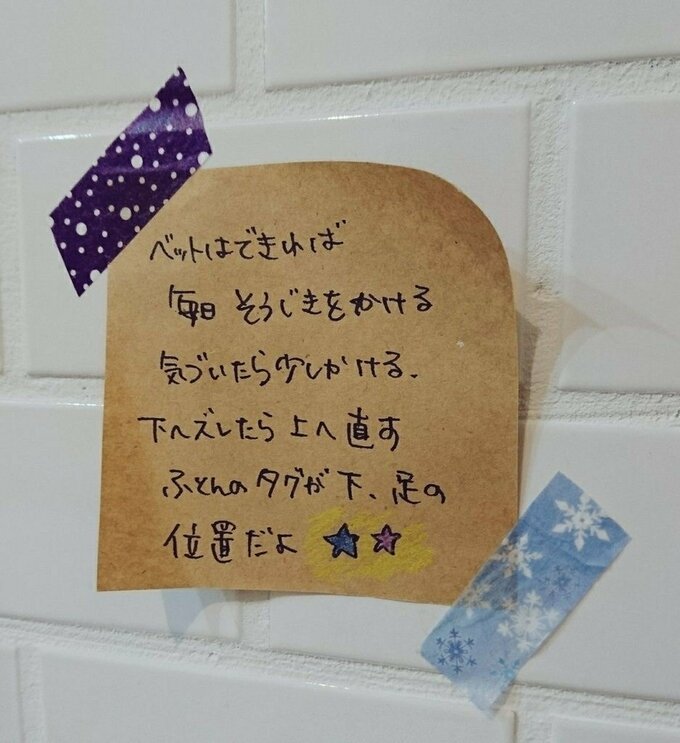 ベットはできれば
毎日 そうじきをかける
気づいたら少しかける、
下へズレたら上へ直す
ふとんのタグが下、足の
位置だよ ★☆